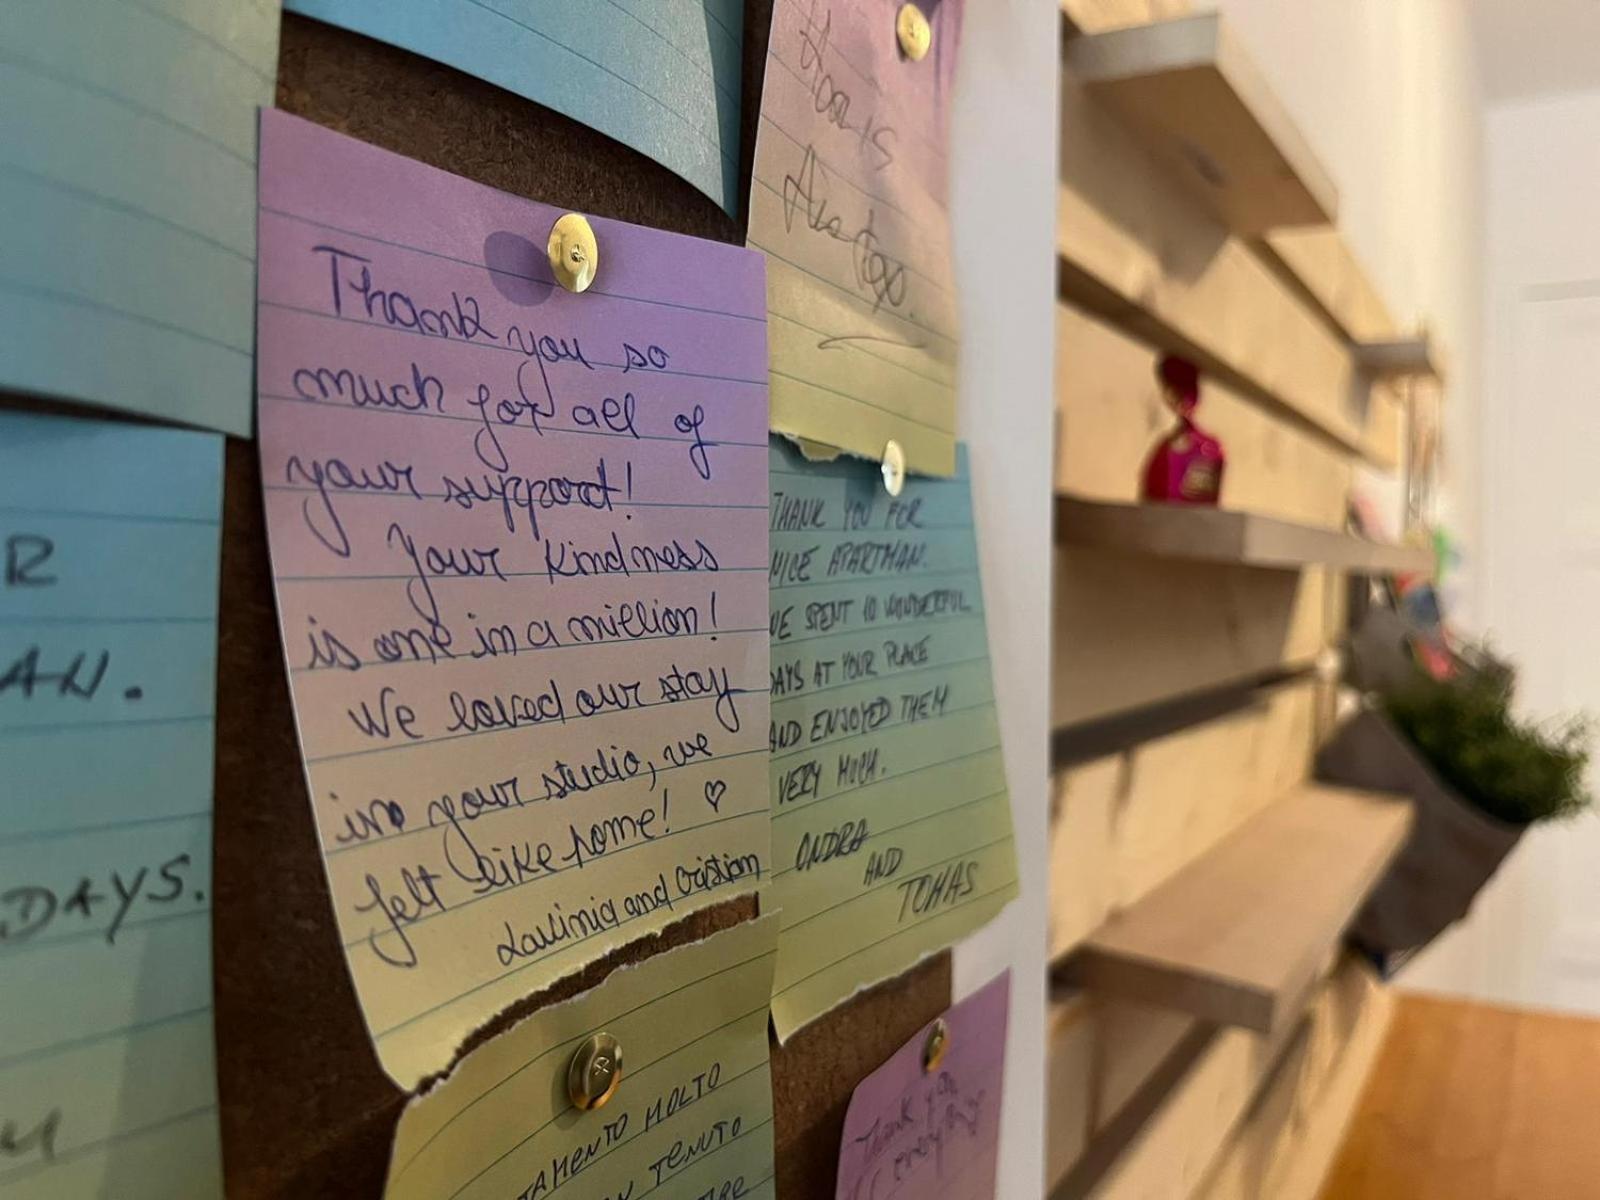 R
AN.
DAYS.
Thank you so
much for all of
your support!
Your kindness
is one in a million!
We loved our stay
in your studio, we
felt like home! ♡
Lavinia and Cristian
THANK YOU FOR
NICE APARTMAN.
WE SPENT 10 WONDERFUL
DAYS AT YOUR PLACE
AND ENJOYED THEM
VERY MUCH.
ONDRA
AND
TOMAS
TAMENTO MOLTO
TENUTO
Thank you